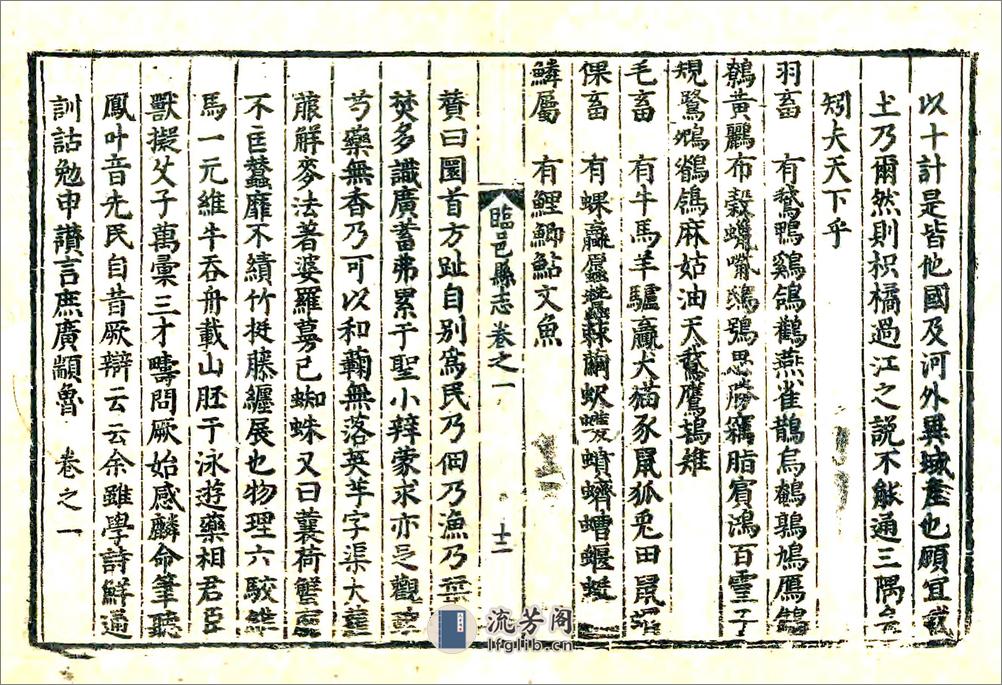 以十計是皆他國及河外異域産也顧宜載
土乃爾然則枳橘過江之説不能通三隅
矧大天下乎
羽畜　有鵞鴨鷄鴿鸛燕雀鵲烏鵪鶉鳩鴈鶬
鶴黄鸝布穀蠟嘴鴟鴞思竊脂賓鴻百靈子
規鷺鴆鶺鴒麻姑油天鵞鷹鴇雉
毛畜　有牛馬羊驢驘犬猫豕鼠狐兎田鼠
倮畜　有蜾蠃蠶繭蚇蠖蠐螬蝘蜓
鱗屬　有鯉鯽鮎文魚
臨邑縣志卷之一
十二
贊曰圜首方趾自别爲民乃佃乃漁乃
焚多識廣蓄弗累于聖小辯蒙求亦足觀
芍藥無香乃可以和蘜無落英芋字渠大
菔解麥法著婆羅蔓已蜘蛛又曰蘘荷蟹
不匡蠶靡不績竹挺藤纏展也物理六駮
馬一元維牛吞舟載山胚于泳遊藥相君臣
獸擬父子萬彙三才疇問厥始感麟命筆聽
鳳叶音先民自昔厥辯云云余雖學詩鮮通
訓詁勉申讃言庶廣顓魯　卷之一
流芳阁
lfglib.cn